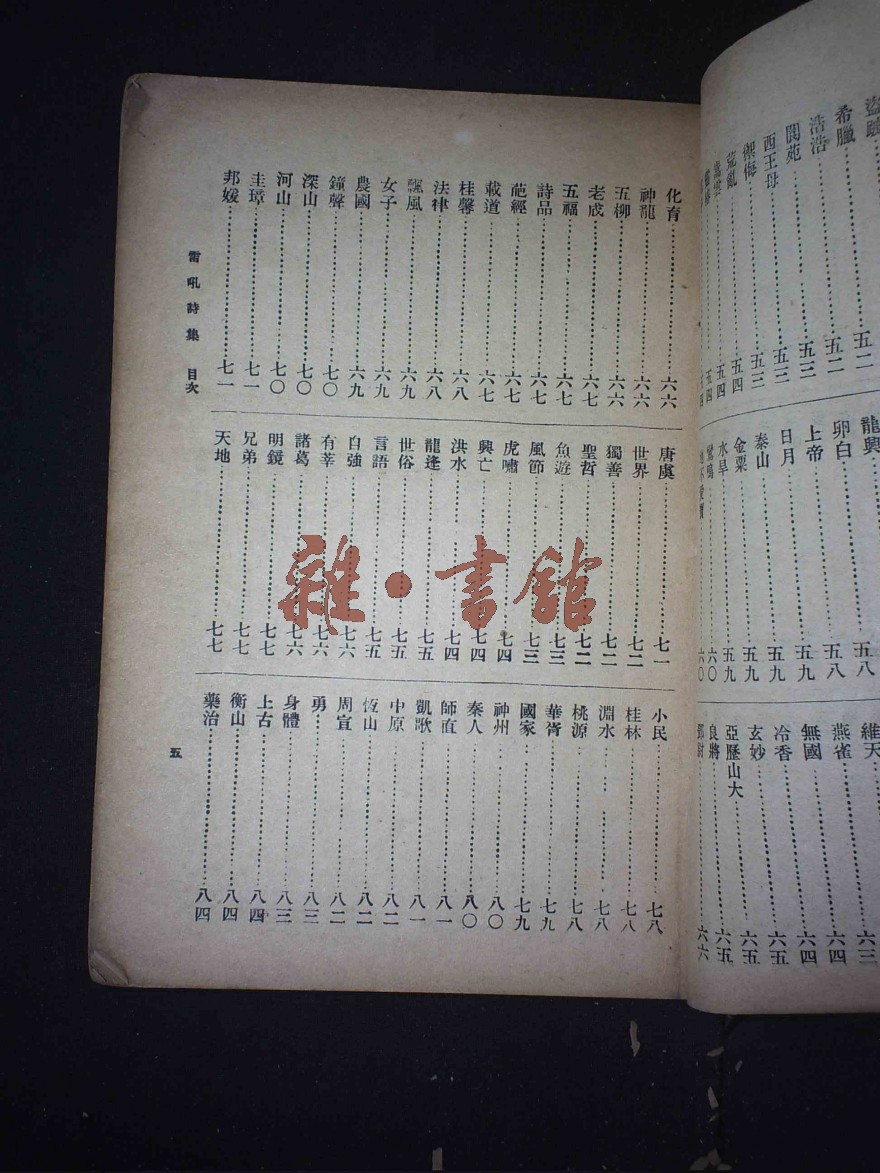 盜賊
希臘……五二
浩浩……五二
閬苑……五三
西王母……五三
禦侮……五三
荒亂……五四
嵩雲……五四
龍興……五八
卵白……五八
上帝……五九
日月……五九
泰山……五九
金粟……五九
水旱……六〇
鸞鳴……六〇
維天……六三
燕雀……六四
無國……六四
冷香……六五
玄妙……六五
亞歷山大……六五
良將……六六
化育……六六
神龍……六六
五柳……六六
老成……六七
五福……六七
詩品……六七
葩經……六七
載道……六七
桂馨……六八
法律……六八
飄風……六九
女子……六九
農國……六九
鐘聲……七〇
深山……七〇
河山……七〇
圭璋……七一
邦媛……七一
唐虞……七一
世界……七二
獨善……七二
聖哲……七二
魚遊……七三
風節……七三
虎嘯……七四
興亡……七四
洪水……七四
龍逢……七五
世俗……七五
言語……七五
自強……七六
有莘……七六
諸葛……七六
明鏡……七七
兄弟……七七
天地……七七
小民……七八
桂林……七八
淵水……七八
桃源……七八
華胥……七九
國家……七九
神州……八〇
秦人……八〇
師直……八一
凱歌……八一
中原……八二
恆山……八二
周宣……八二
勇……八三
身體……八三
上古……八四
衡山……八四
藥治……八四
雷吼詩集 目次
五
雜·書館